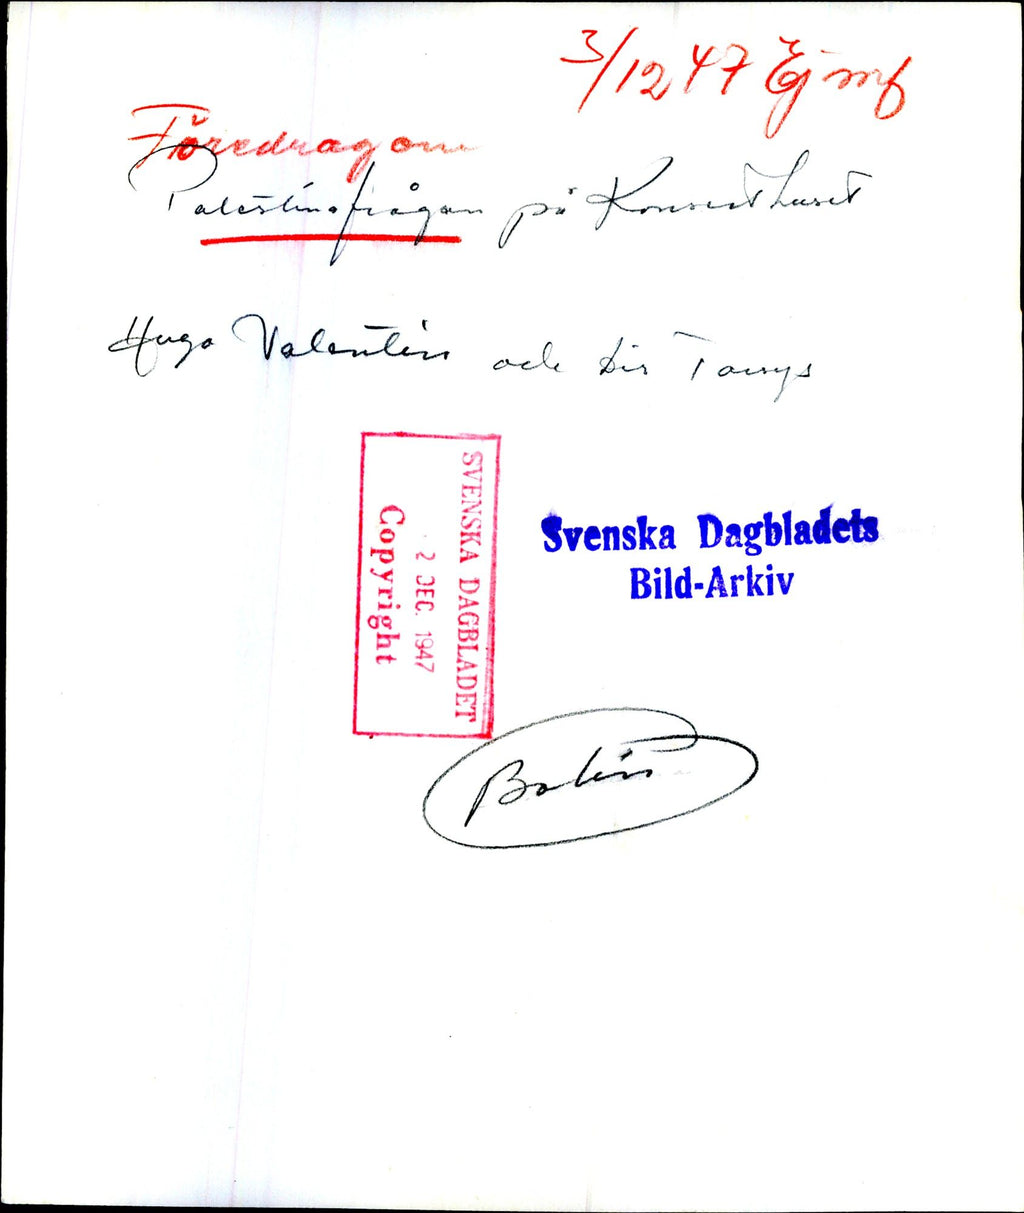 3/12 47 Ej inf
Föredrag om
Palestinafrågan på Konserthuset
Hugo Valentin och dir
SVENSKA DAGBLADET
2 DEC. 1947
Copyright
Svenska Dagbladets
Bild-Arkiv